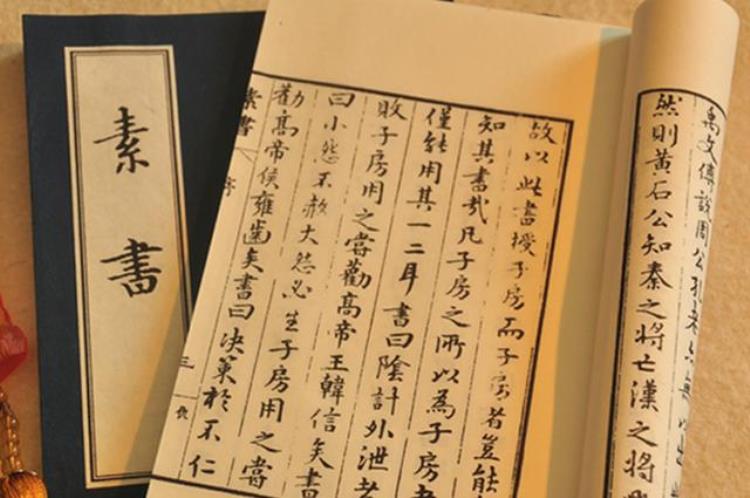 禹文傅說周公孔老亦無以出此
然則黃石公知秦之將亡漢之將
故以此書授子房而子房者豈能
知其書哉凡子房之所以為子房
僅能用其一二耳書曰陰計外泄者
敗子房用之嘗勸高帝王韓信矣書
曰小怨不赦大怨必生子房用之嘗
勸高帝侯雍齒矣書曰決策於不仁
素書
序
三
素書